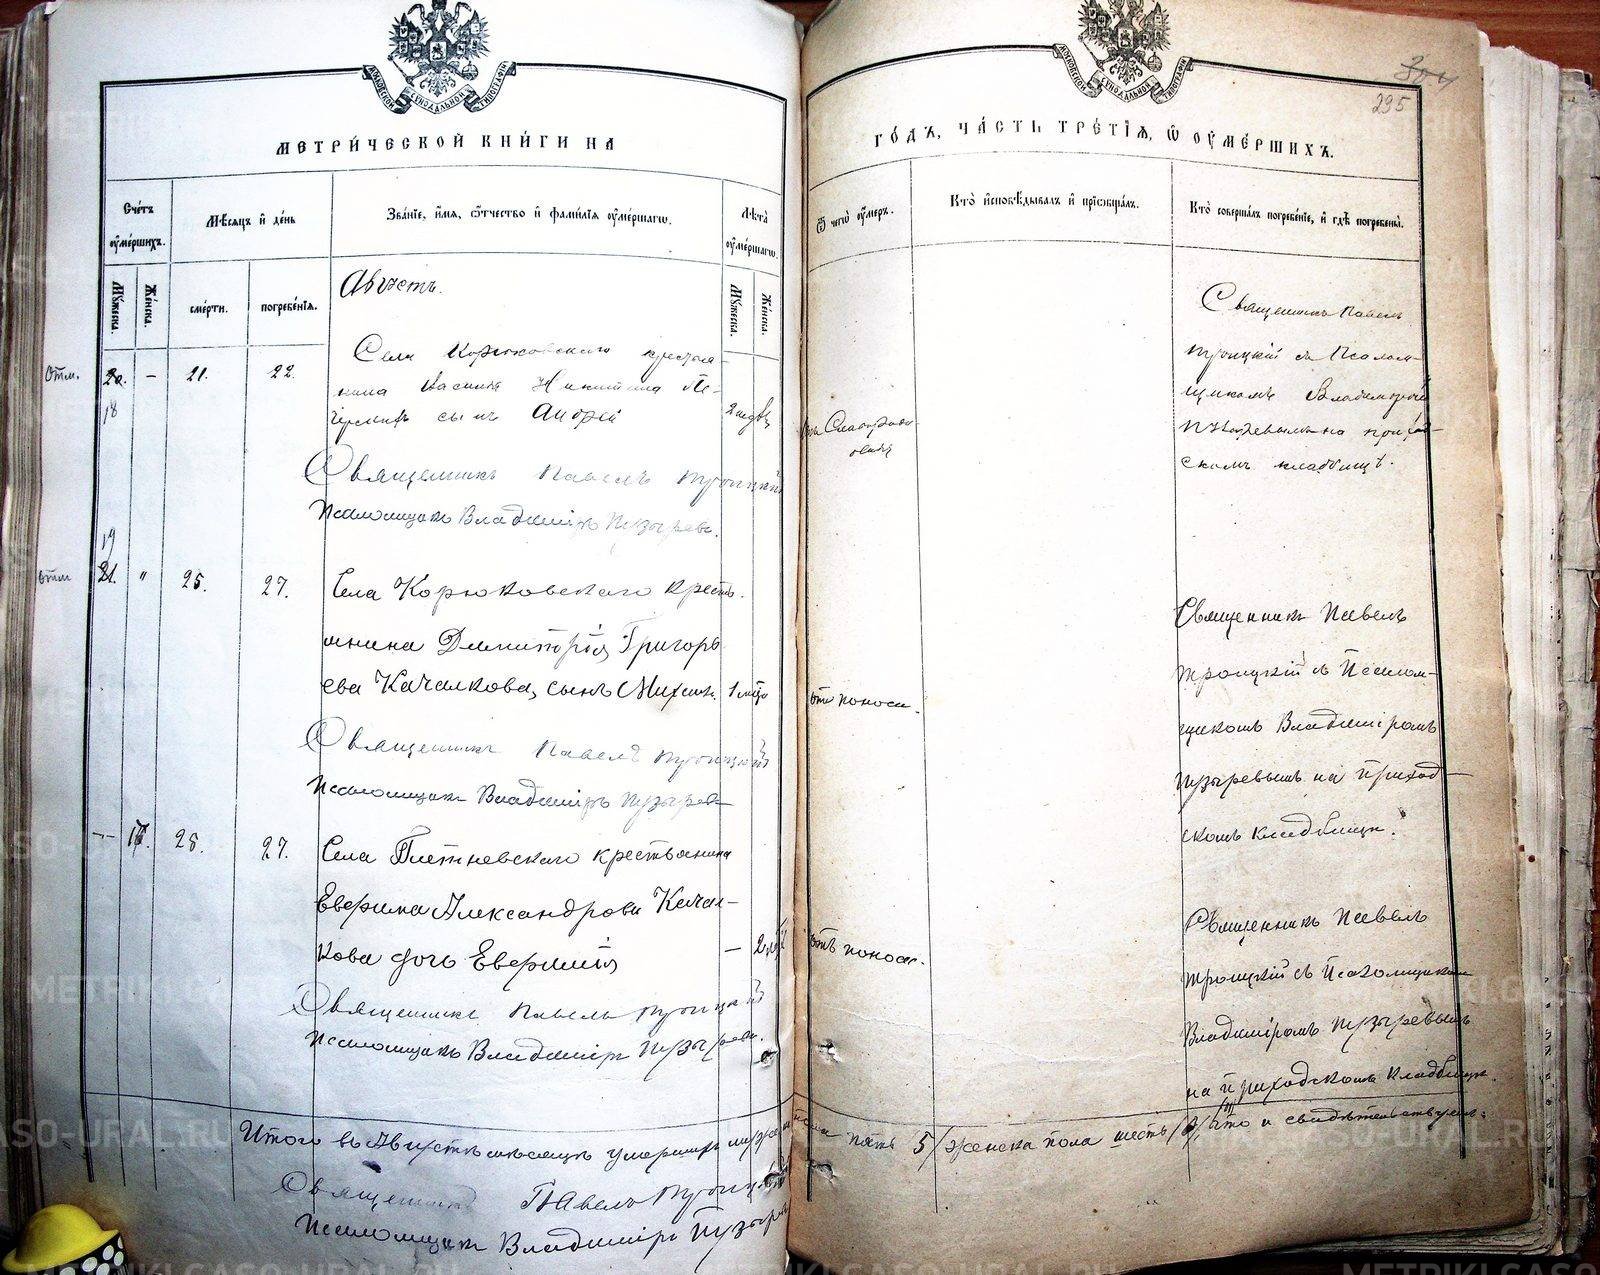 МОСКОВСКОЙ СѴНОДАЛЬНОЙ ТИПОГРАФІИ
МЕТРИ́ЧЕСКОЙ КНИ́ГИ НА
Сче́тъ ᲂу҆ме́ршихъ.
Мѣ́сяцъ и҆ де́нь
Зва́ніе, и҆́мя, ѻ҆́тчество и҆ фами́лія ᲂу҆ме́ршагѡ.
Лѣ́та ᲂу҆ме́ршагѡ.
Му́жеска.
Же́нска.
сме́рти.
погребе́нія.
Му́жеска.
Же́нска.
Августъ.
Отм. 20. – 21. 22.
18
Села Корюковскаго крестья-
нина Василія Никитина Пе-
сынъ Андрей
2 нед.
Священникъ Павелъ Троицкій
Псаломщикъ Владиміръ Пузыревъ.
19
Отм 21. " 25. 27.
Села Корюковскаго кресть-
янина Димитрія Григорь
ева Качалкова, сынъ Михаилъ. 1 мѣс
Священникъ Павелъ Троицкій
Псаломщикъ Владиміръ Пузырев
— 17. 25. 27.
Села Плетневскаго крестьянина
Евфима Александрова Качал-
кова дочь Евфимія — 2
Священникъ Павелъ Троицкій
Псаломщикъ Владиміръ Пузыревъ.
Итого въ Августѣ мѣсяцѣ умершихъ мужеска
Священникъ Павелъ Троицкій
Псаломщикъ Владиміръ Пузырев
МОСКОВСКОЙ СѴНОДАЛЬНОЙ ТИПОГРАФІИ
304
295
ГО́ДЪ, ЧА́СТЬ ТРЕ́ТІЯ, Ѡ҆ ᲂУ҆МЕ́РШИХЪ.
Ѿ чегѡ̀ ᲂу҆́меръ.
Кто̀ и҆сповѣ́дывалъ и҆ прїѡбща́лъ.
Кто̀ соверша́лъ погребе́ніе, и҆ гдѣ̀ погребены̀.
Священникъ Павелъ
Троицкій съ Псалом-
щикомъ Владиміромъ
Пузыревымъ на приход-
скомъ кладбищѣ.
отъ поноса.
Священникъ Павелъ
Троицкій съ Псалом-
щикомъ Владиміромъ
Пузыревымъ на приход-
скомъ кладбищѣ.
отъ поноса.
Священникъ Павелъ
Троицкій съ Псаломщикомъ
Владиміромъ Пузыревымъ
на приходскомъ кладбищѣ.
пола пять 5/ женска пола шесть /6/, что и свидѣтельствуемъ: